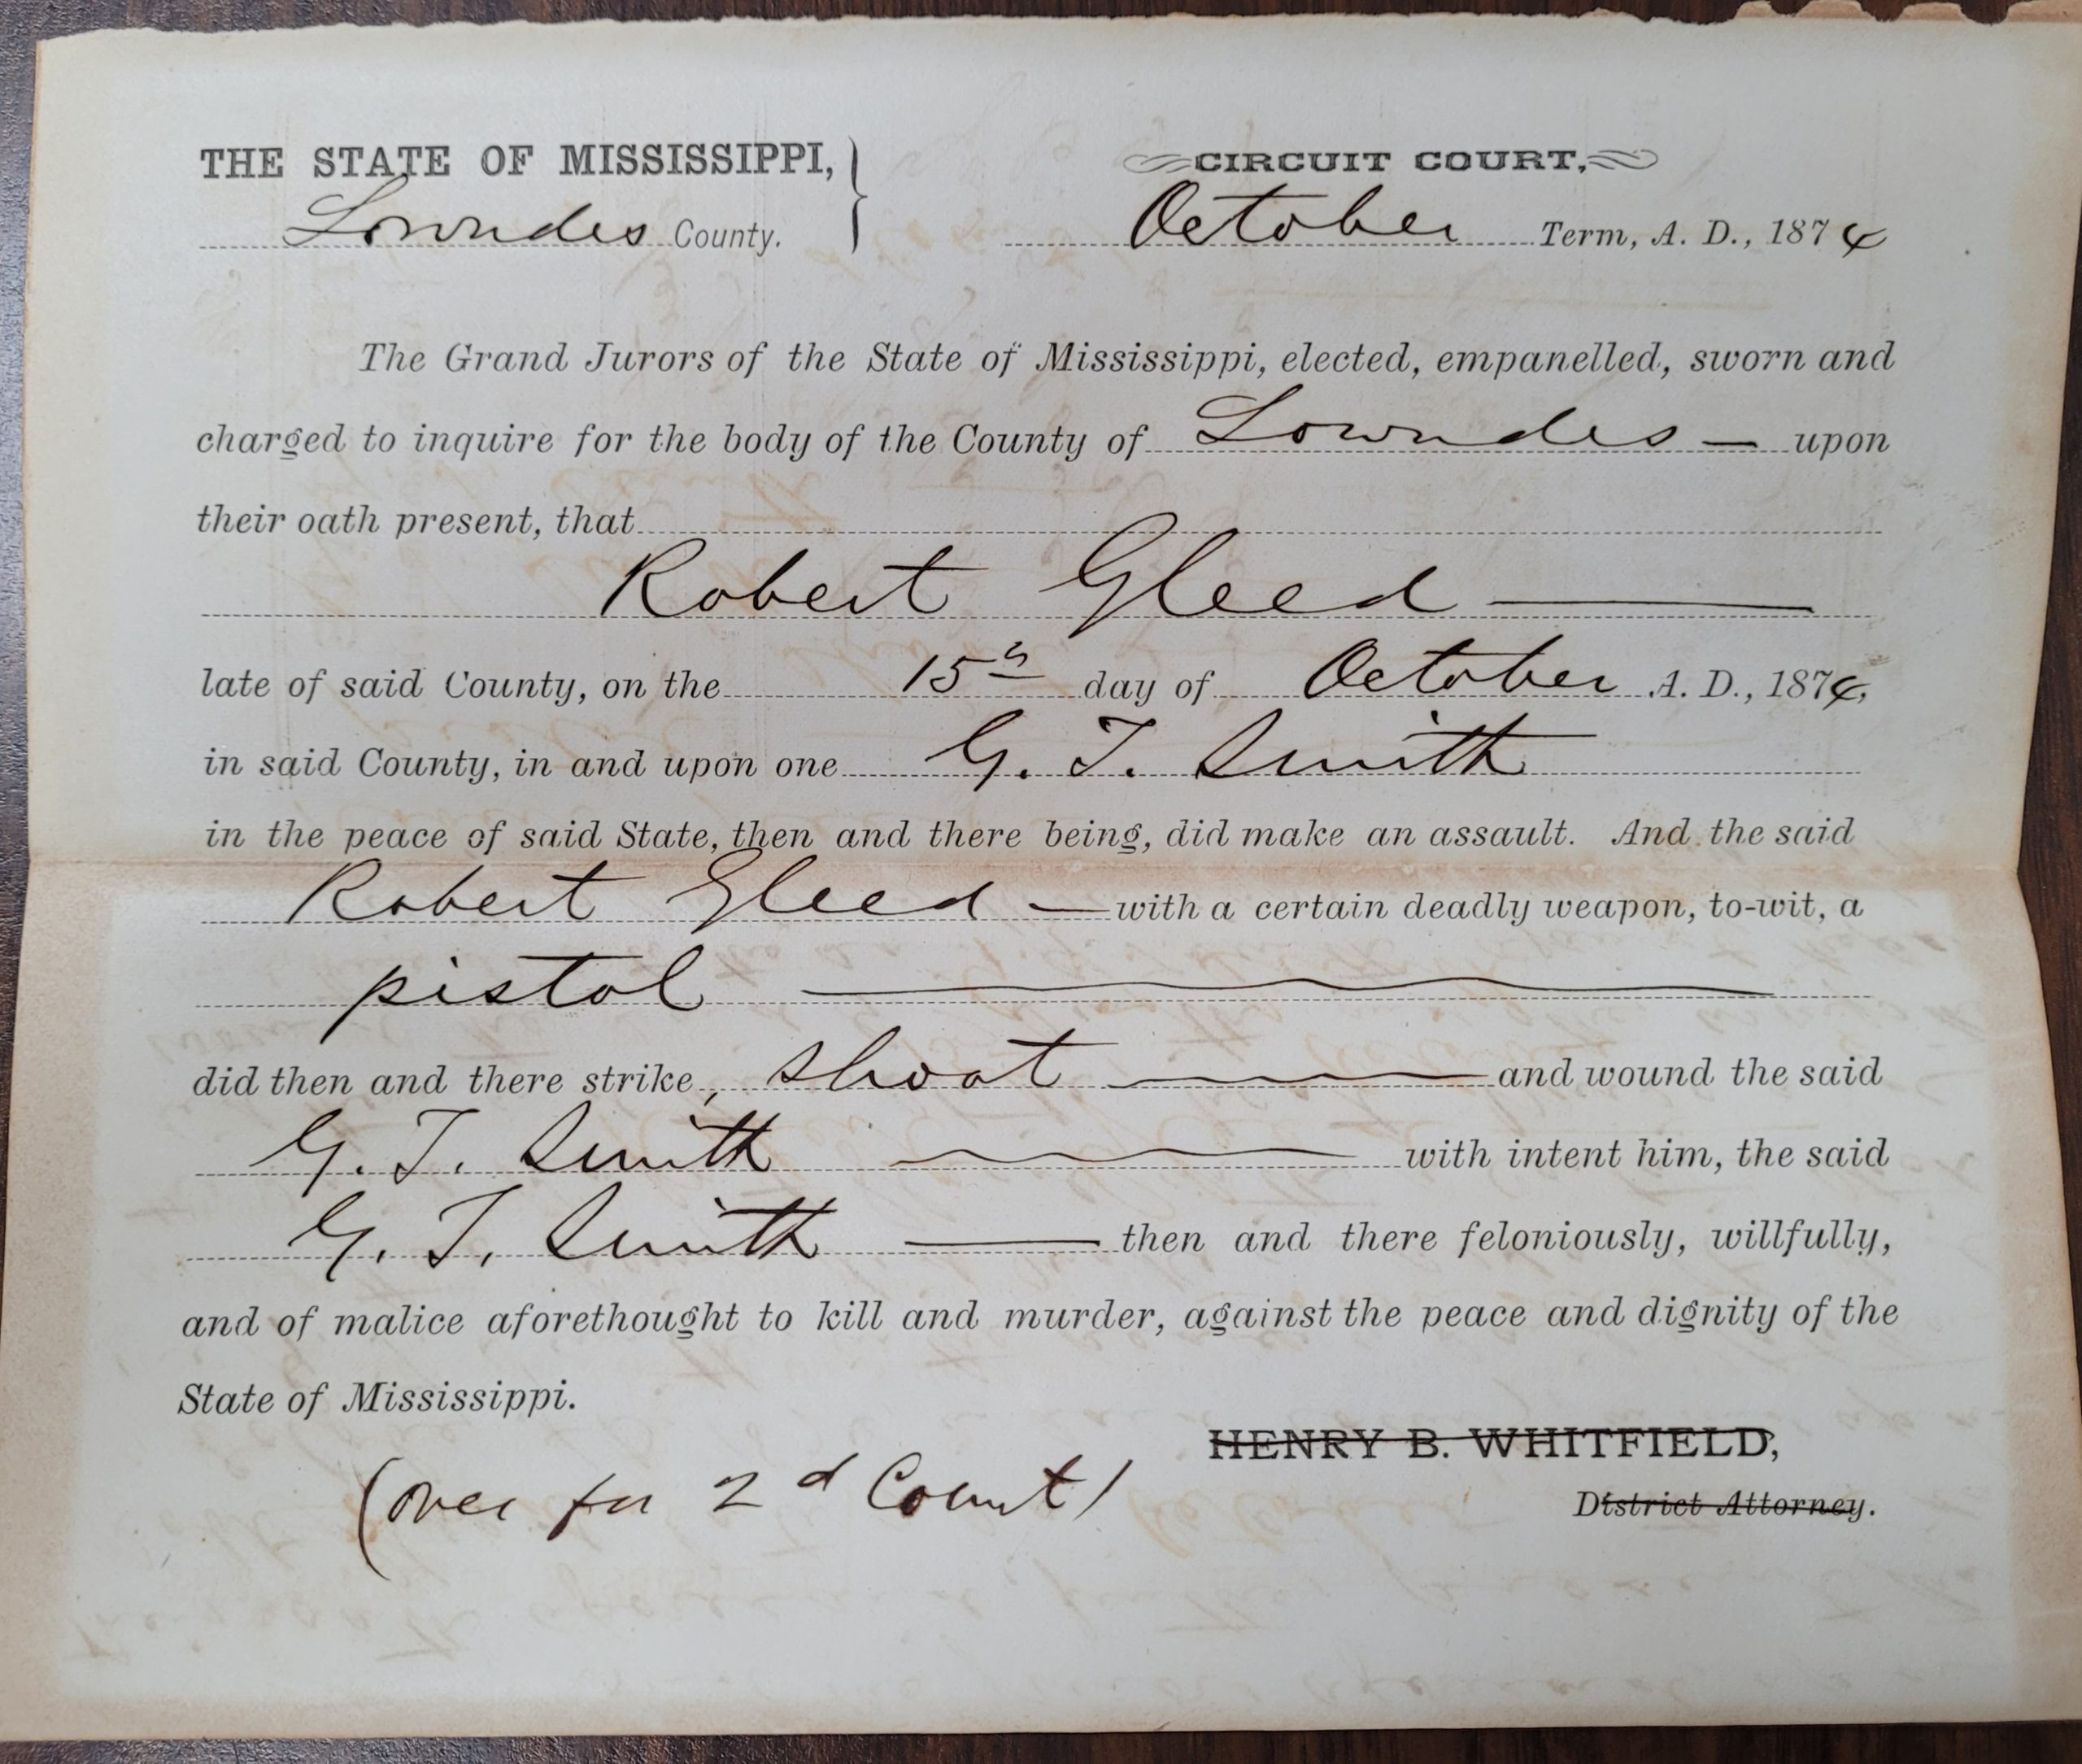 THE STATE OF MISSISSIPPI,
Lowndes County.
CIRCUIT COURT,
October Term, A. D., 1874
The Grand Jurors of the State of Mississippi, elected, empanelled, sworn and
charged to inquire for the body of the County of Lowndes — upon
their oath present, that
Robert Gleed —
late of said County, on the 15th day of October A. D., 1874,
in said County, in and upon one G. T. Smith
in the peace of said State, then and there being, did make an assault. And the said
Robert Gleed — with a certain deadly weapon, to-wit, a
pistol —
did then and there strike, shoot — and wound the said
G. T. Smith — with intent him, the said
G. T. Smith — then and there feloniously, willfully,
and of malice aforethought to kill and murder, against the peace and dignity of the
State of Mississippi.
HENRY B. WHITFIELD,
District Attorney.
(over for 2d Count)